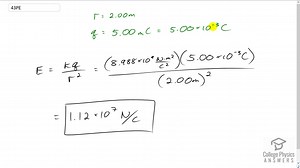 43PE
r = 2.00m
q = 5.00 mC = 5.00×10⁻³ C
E = kq / r² = (8.988×10⁹ N·m²/C²)(5.00×10⁻³ C) / (2.00m)²
= 1.12×10⁷ N/C
College Physics
ANSWERS